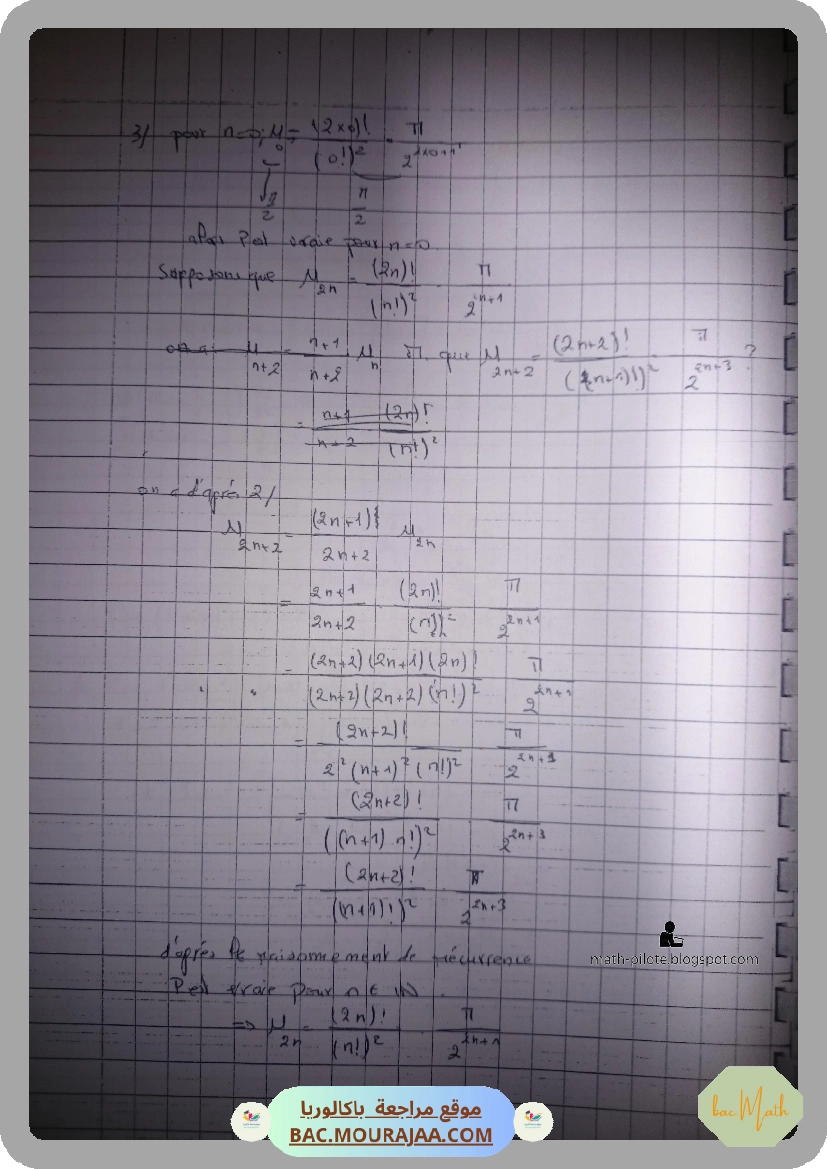 3/ pour n=0, μ₀ = (2×0)! / (0!)² · π / 2^(2×0+1)
π/2 π/2
alors P est vraie pour n=0
Supposons que μ_2n = (2n)! / (n!)² · π / 2^(2n+1)
on a μ_n+2 = n+1 / n+2 μ_n π. que μ_2n+2 = (2n+2)! / ((n+1)!)² π / 2^(2n+3) ?
= n+1 / n+2 (2n)! / (n!)²
on a d'après 2/
μ_2n+2 = (2n+1) / 2n+2 μ_2n
= 2n+1 / 2n+2 · (2n)! / (n!)² π / 2^(2n+1)
= (2n+2)(2n+1)(2n)! / (2n+2)(2n+2)(n!)² π / 2^(2n+1)
= (2n+2)! / 2²(n+1)²(n!)² π / 2^(2n+1)
= (2n+2)! / ((n+1) n!)² · π / 2^(2n+3)
= (2n+2)! / ((n+1)!)² · π / 2^(2n+3)
d'après le raisonnement de récurrence
P est vraie pour n ∈ IN.
⇒ μ_2n = (2n)! / (n!)² · π / 2^(2n+1)
math-pilote.blogspot.com
bac Math
موقع مراجعة باكالوريا
BAC.MOURAJAA.COM